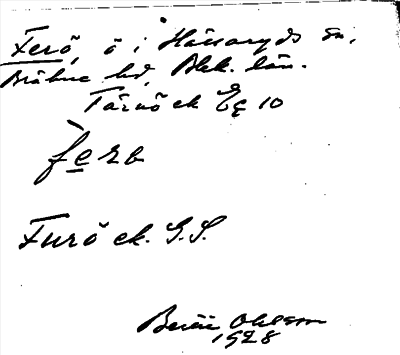 Ferö, ö i Hällaryds sn,
Bräkne hd, Blek. län.
Tärnö ek Eg 10
fèrö
Furö ek. G.S.
Ohlsson
1928